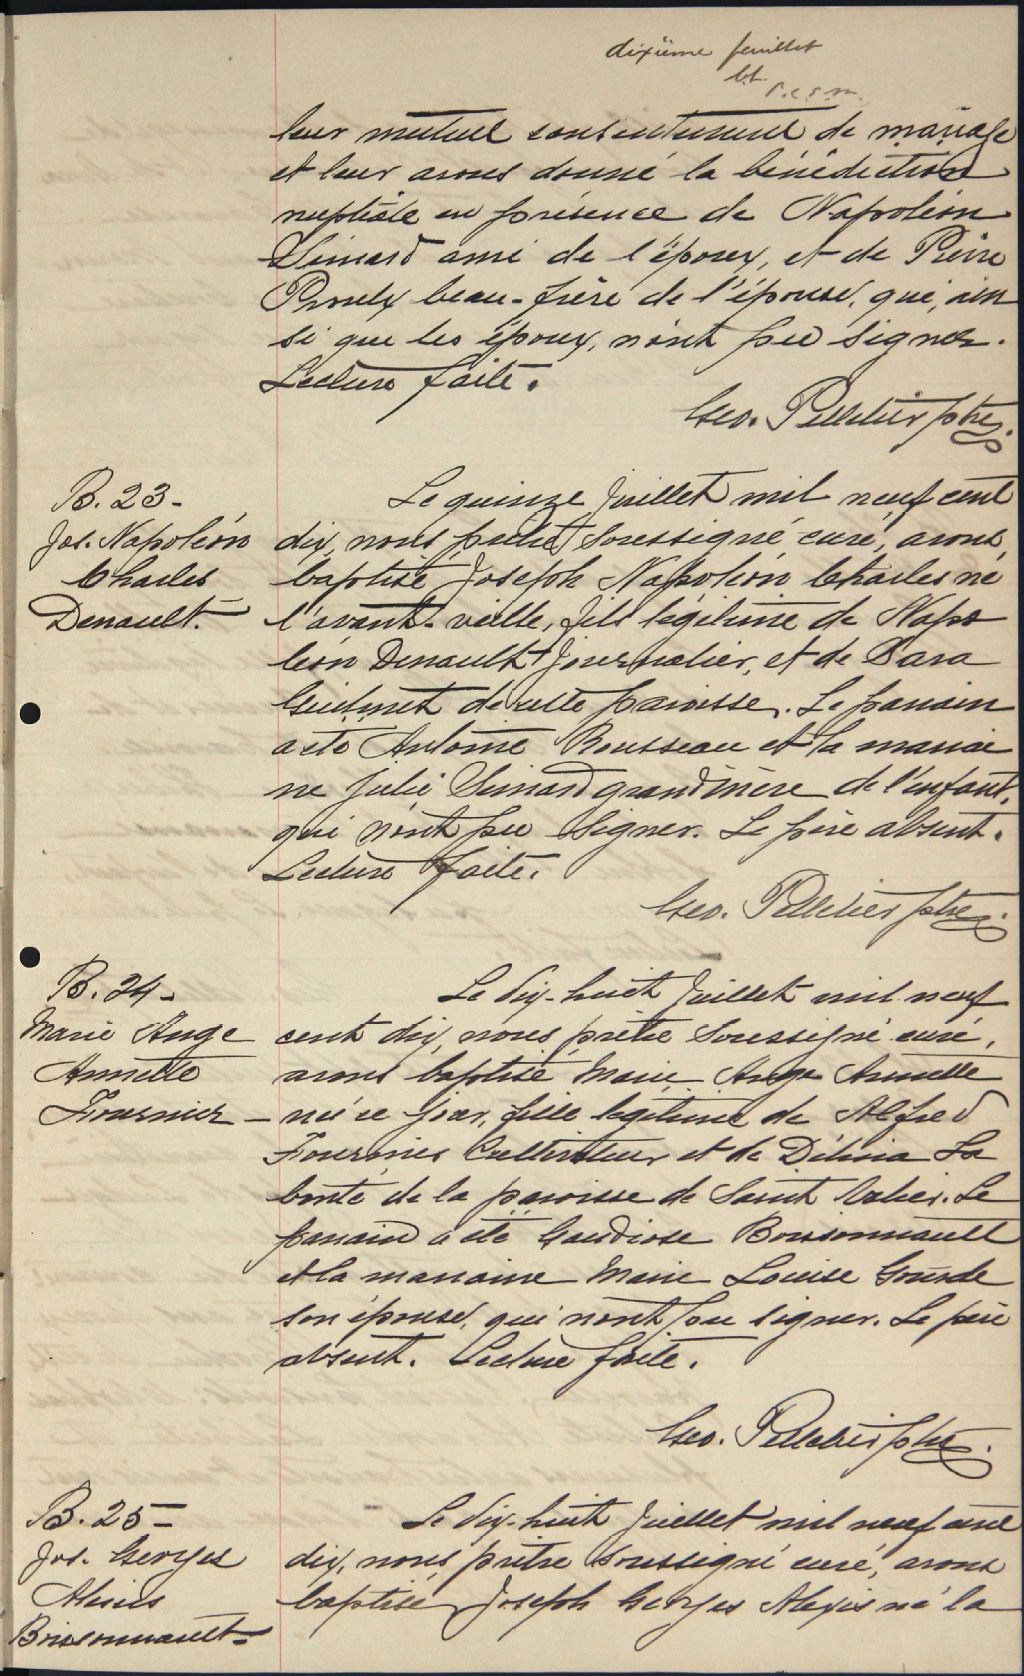 dixième feuillet
leur mutuel consentement de mariage
et leur avons donné la bénédiction
nuptiale en présence de Napoléon
Simard ami de l'époux, et de Pierre
Proulx beau-frère de l'épouse, qui, ain
si que les époux, n'ont pu signer.
Lecture faite.
Geo. Pelletier ptre.
B. 23-
Jos. Napoléon
Charles
Denault.
Le quinze Juillet mil neuf cent
dix, nous prêtre soussigné curé, avons
baptisé Joseph Napoléon Charles né
l'avant-veille, fils légitime de Napo
léon Denault Journalier, et de Sara
de cette paroisse. Le parrain
a été Antoine Rousseau et la marrai
ne Julie Simard grand'mère de l'enfant,
qui n'ont pu signer. Le père absent.
Lecture faite.
Geo. Pelletier ptre.
B. 24-
Marie Ange
Annette
Fournier -
Le dix-huit Juillet mil neuf
cent dix, nous prêtre soussigné curé,
avons baptisé Marie Ange Annette
née ce jour, fille légitime de Alfred
Fournier Cultivateur et de Délina La
bonté de la paroisse de Saint Valier. Le
parrain a été Gaudiose Boissonnault
et la marraine Marie Louise Gourde
son épouse, qui n'ont pu signer. Le père
absent. Lecture faite.
Geo. Pelletier ptre.
B. 25-
Jos. Georges
Alexis
Boissonnault-
Le dix-huit Juillet mil neuf cent
dix, nous prêtre soussigné curé, avons
baptisé Joseph Georges Alexis né la